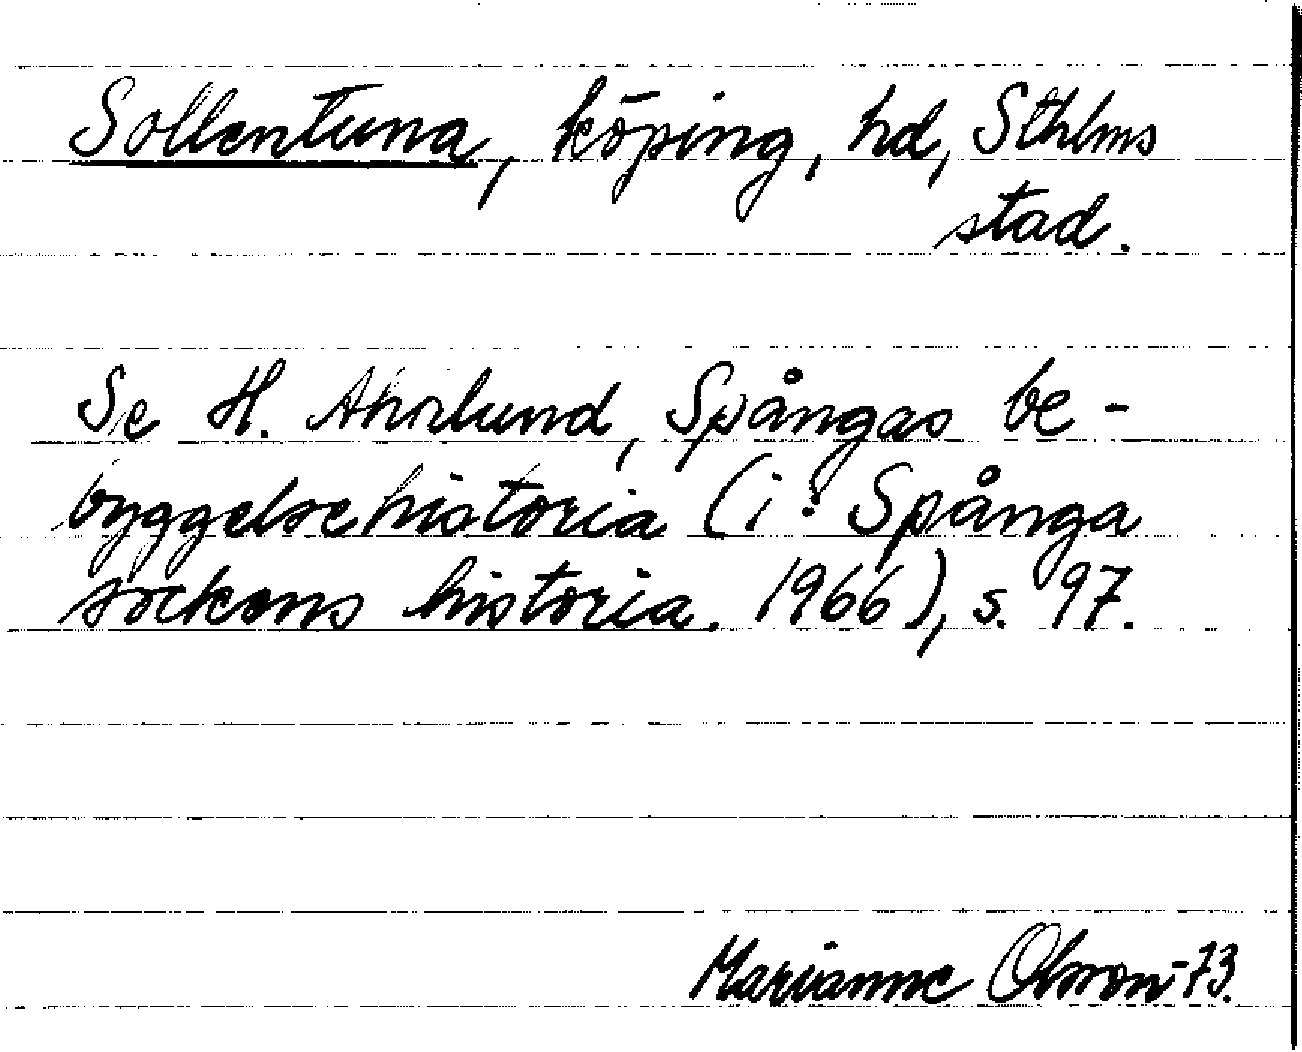 Sollentuna, köping, hd, Sthlms
stad.
Se H. Ahrlund, Spångas be-
byggelsehistoria (i: Spånga
sockens historia. 1966), s. 97.
Marianne Olsson -73.